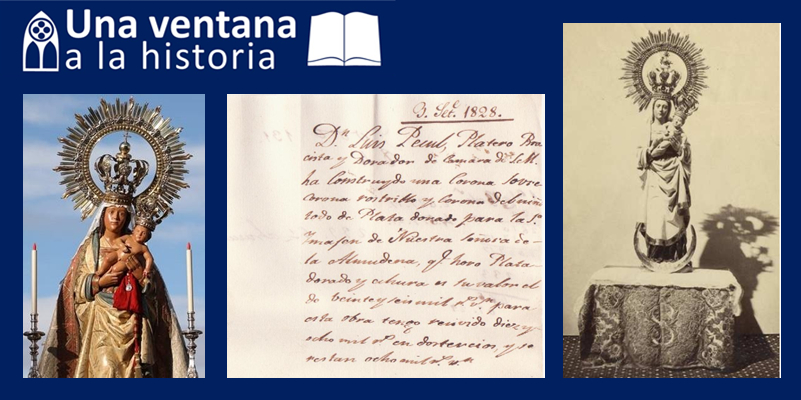 Una ventana
a la historia
3. Set.e 1828.
Dn. Luis Pecul, Platero Bron
cista y Dorador de Camara de S. M.
ha Construydo una Corona sovre
corona rostrillo y Corona del niño
todo de Plata dorado para la Sta.
Imajen de Nuestra Señora de
la Almudena,
dorado y echura es su valor el
de veinte y seis mil rs. vn. para
esta obra tengo recivido diez y
ocho mil rs. en dos tercios, y se
restan ocho mil rs. vn.